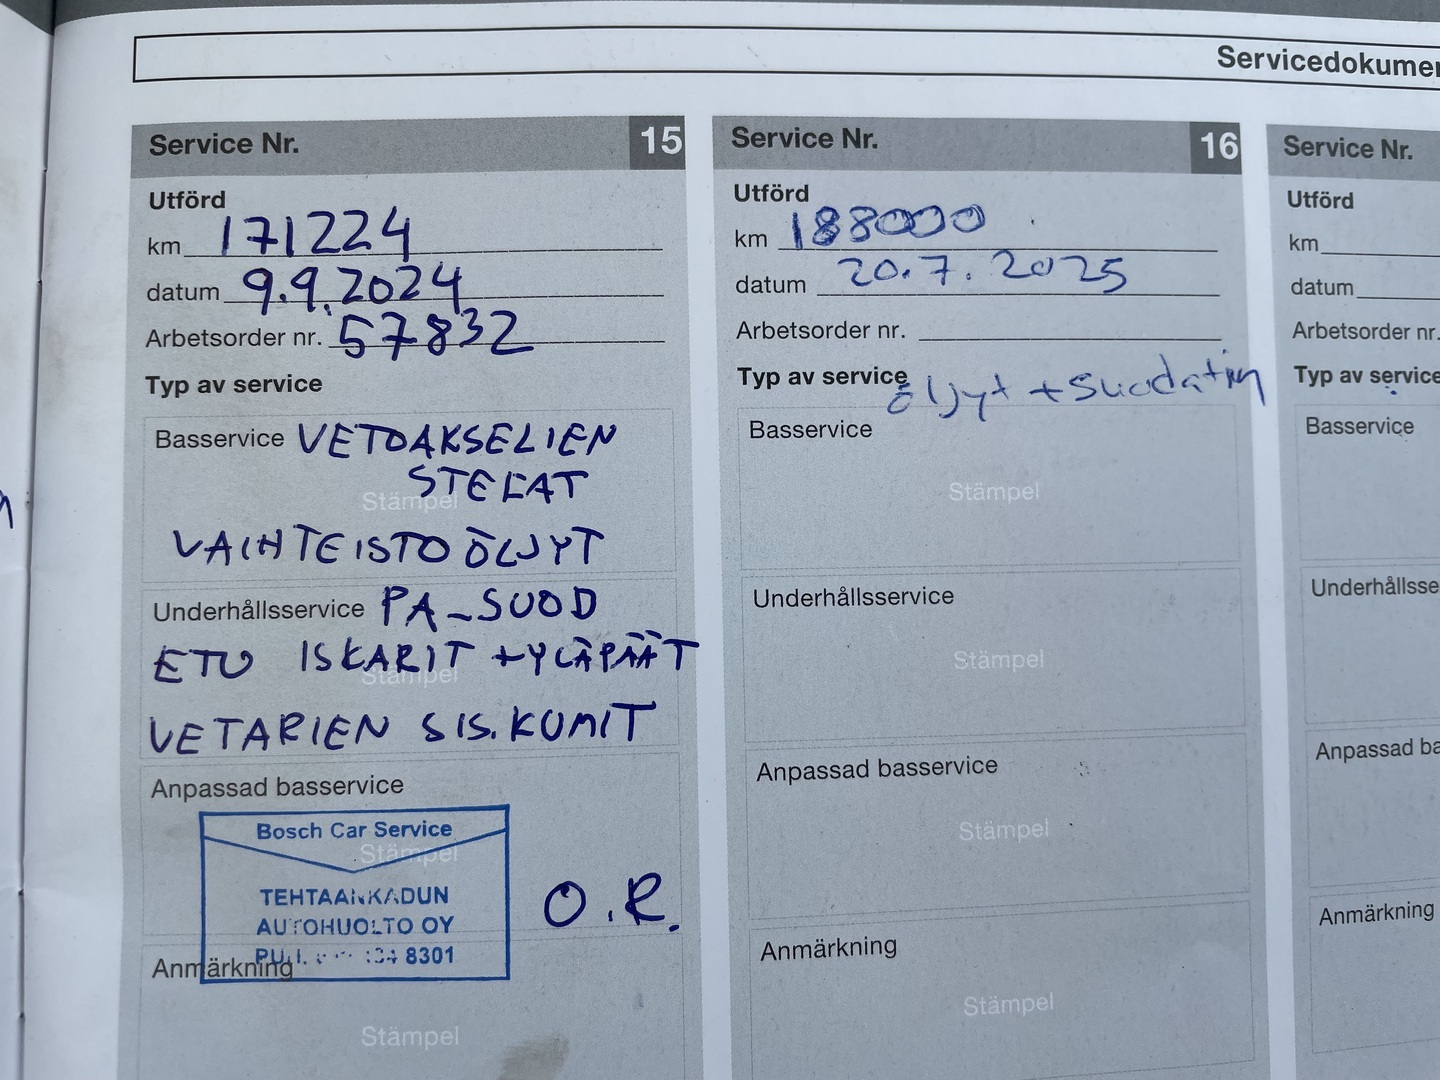 Servicedokumen
Service Nr. 15
Utförd
km 171224
datum 9.9.2024
Arbetsorder nr. 57832
Typ av service
Basservice VETOAKSELIEN
STEFAT
Stämpel
VAIHTEISTO ÖLJYT
Underhållsservice PA-SUOD
ETU ISKARIT + YLÄPÄÄT
Stämpel
VETARIEN SIS. KUMIT
Anpassad basservice
Bosch Car Service
Stämpel
TEHTAANKADUN
AUTOHUOLTO OY
8301
O.R.
Anmärkning
Stämpel
Service Nr. 16
Utförd
km 188000
datum 20.7.2025
Arbetsorder nr.
Typ av service öljyt + suodatin
Basservice
Stämpel
Underhållsservice
Stämpel
Anpassad basservice
Stämpel
Anmärkning
Stämpel
Service Nr.
Utförd
km
datum
Arbetsorder nr.
Typ av service
Basservice
Underhållsse
Anpassad ba
Anmärkning